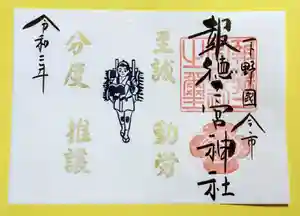 下野國 今市
報徳二宮神社
至誠 勤労
分度 推譲
令和二年